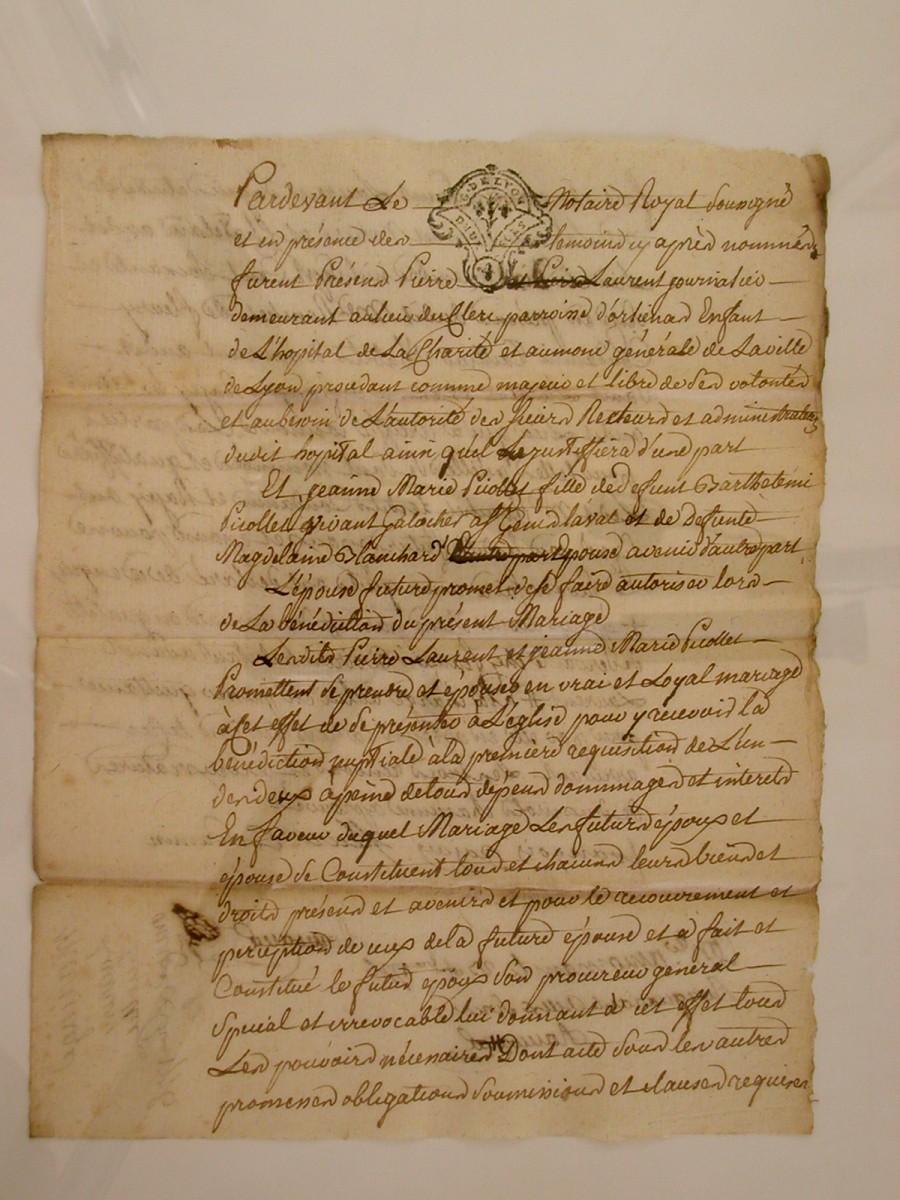 Pardevant Le Notaire Royal Soussigné
G. DE LYON
et en présence des temoins cy après nommés
furent Présens Pierre Laurent journalier
demeurant au lieu du Clerc parroisse d'orlienas Enfant
de L'hopital de La Charité et aumone générale de Laville
de Lyon procédant comme majeur et libre de ses volontés
et au besoin de L'autorité des sieurs Recteurs et administrateurs
dudit hopital ainsi qu'il Le justiffiera d'une part
Et jeanne Marie Picollet fille de defunt Barthelemi
Picollet vivant Galocher a et de Defunte
Magdelaine Blanchard Epouse avenir d'autre part
L'épouse future promet de se faire autoriser lors
de La bénédiction du présent Mariage
Lesdits Pierre Laurent et jeanne Marie Picollet
Promettent Se prendre et épouser en vrai et Loyal mariage
à Cet effet de Se présenter à L'église pour y recevoir la
bénédiction nuptiale à la premiere requisition de L'un
des deux à peine de tous dépens dommages et interets
En faveur duquel Mariage Les futurs époux et
épouse Se Constituent tous et chacuns leurs biens et
droits présens et avenirs et pour le recouvrement et
perception de ceux de la future épouse et à fait et
Constitué le futur époux son procureur général
Special et irrevocable lui donnant à cet effet tous
Les pouvoirs nécessaires Dont acte Sous les autres
promesses obligations Soumissions et clauses requises